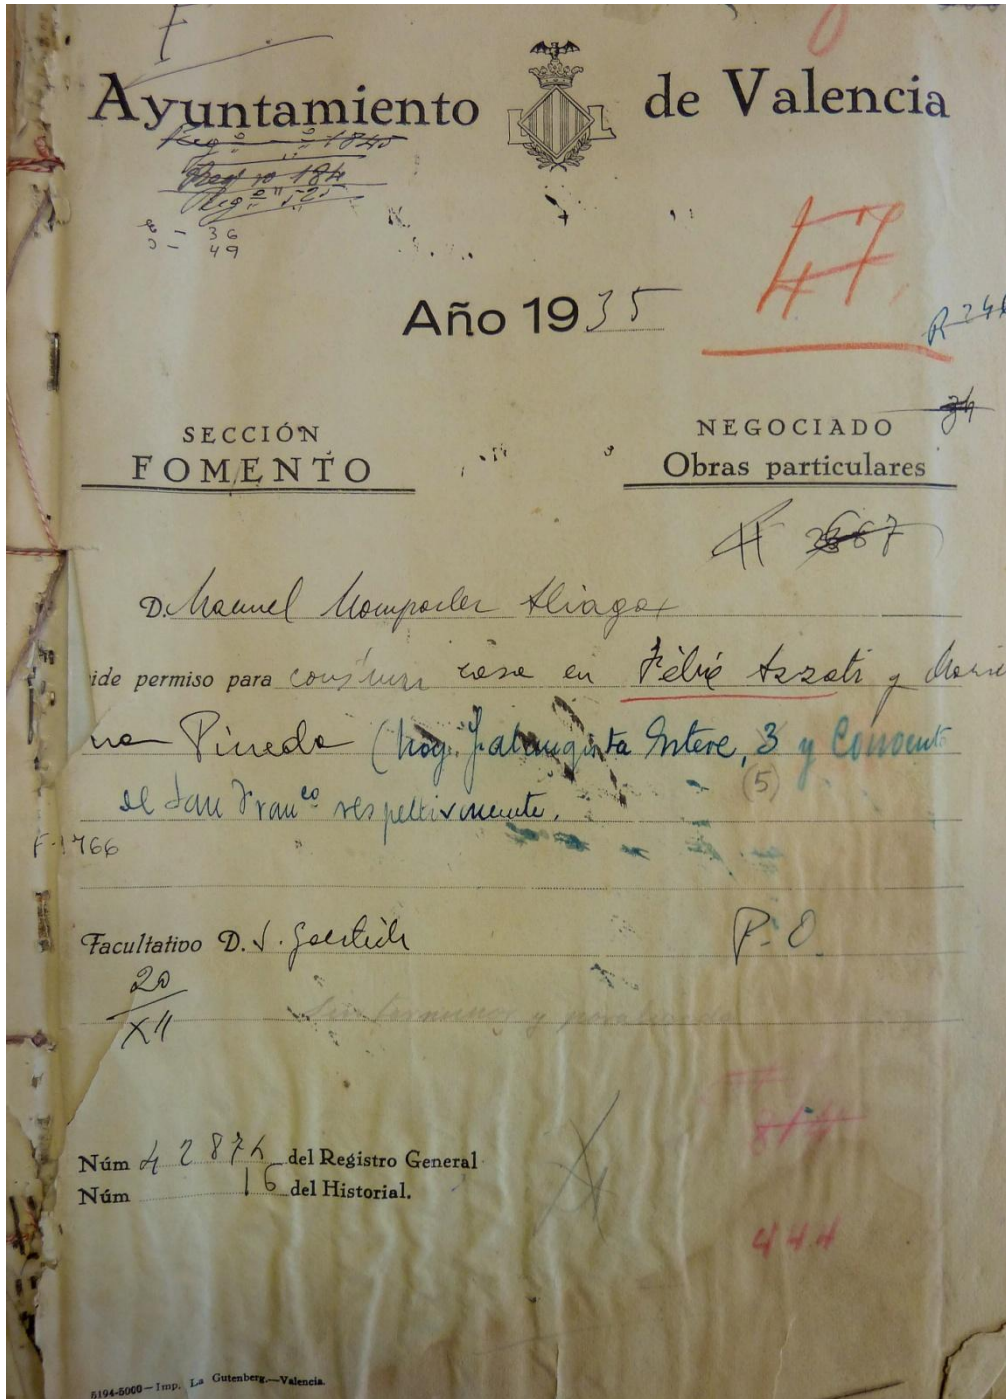 F
Ayuntamiento de Valencia
Reg º " 1845
184
Reg º " 525
- 36
- 49
47
Año 1935
SECCIÓN
FOMENTO
NEGOCIADO
Obras particulares
D. Manuel Momparler Aliaga
ide permiso para construir casa en Félix Azzati y Maria
na Pineda (hoy Falangista Esteve, 3 y Convento
(5)
de San Franco respectivamente.
F-1766
Facultativo D. J. Goerlich P-O.
20
XII
Sin terminar y paralizada
Núm 42874 del Registro General
Núm 16 del Historial.
444
5194-5000—Imp. La Gutenberg.—Valencia.